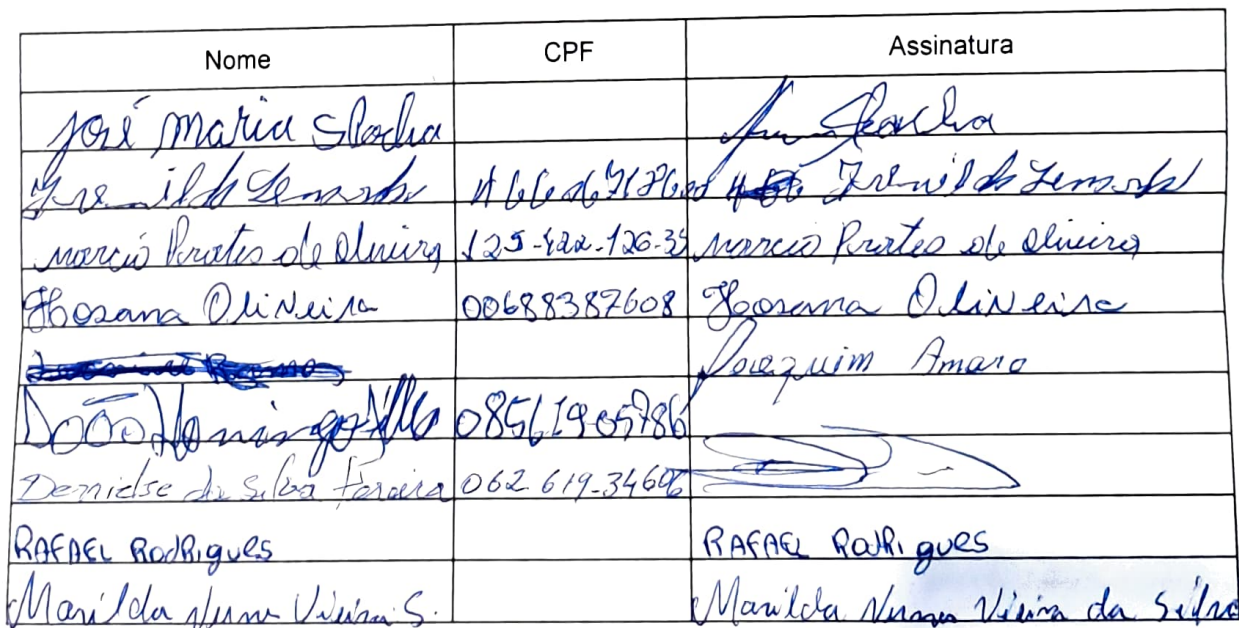 Nome CPF Assinatura
José Maria Rocha Rocha
Lemos
Marcio Prates de Oliveira 125-422-126-35 Marcio Prates de Oliveira
Hosana Oliveira 00688387608 Hosana Oliveira
Joaquim Amaro
João Domingo 08561905786
da Silva Ferreira 062.619-34606
RAFAEL RodRigues RAFAEL RodRigues
Marilda Nunes Vieira S. Marilda Nunes Vieira da Silva